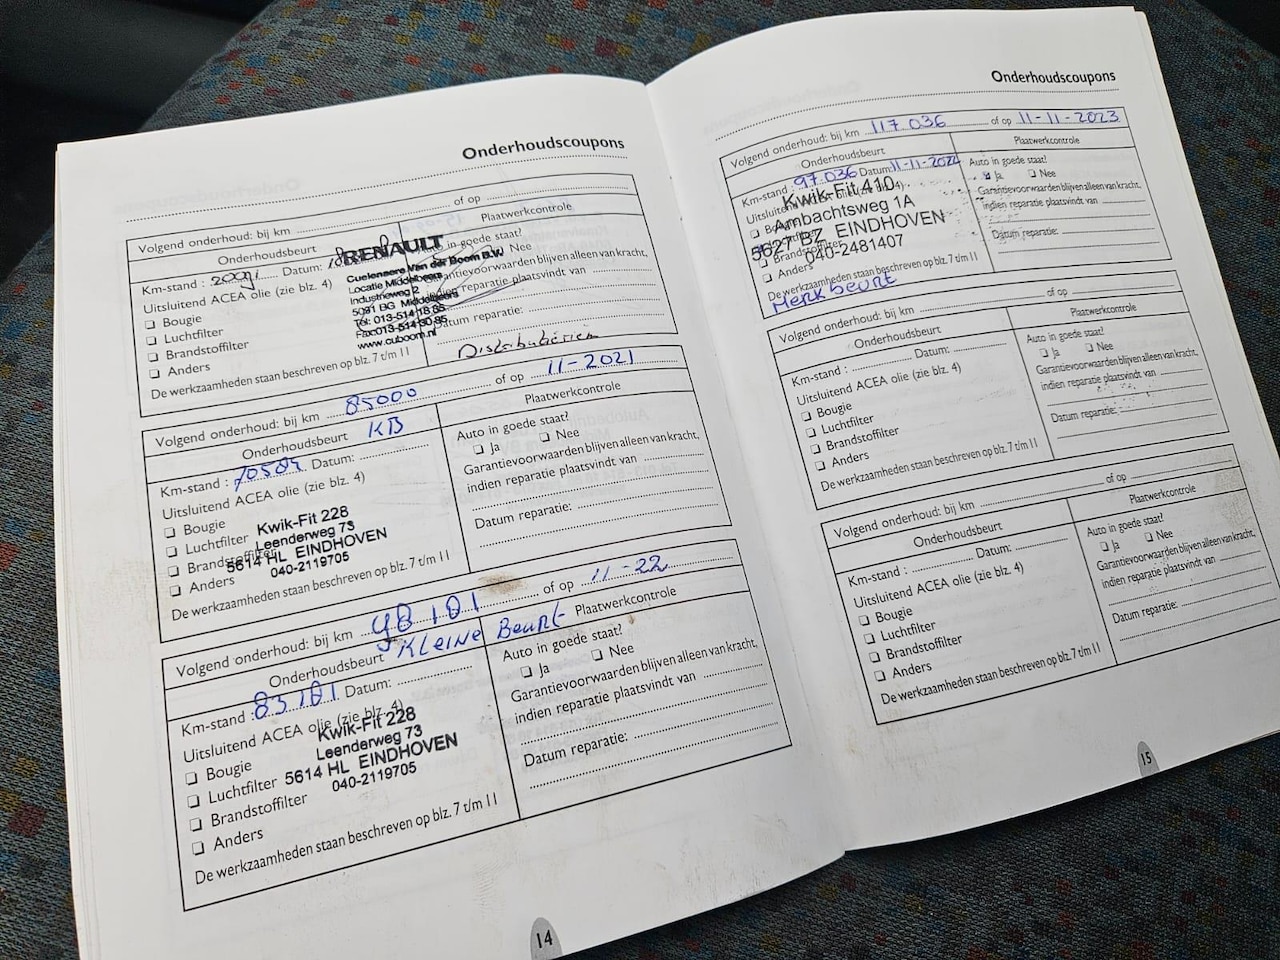 Onderhoudscoupons
Volgend onderhoud: bij km of op
Onderhoudsbeurt
Plaatwerkcontrole
Km-stand : Datum:
Uitsluitend ACEA olie (zie blz. 4)
❏ Bougie
❏ Luchtfilter
❏ Brandstoffilter
❏ Anders
De werkzaamheden staan beschreven op blz. 7 t/m 11
RENAULT
Cuelenaere Van der Boom B.V.
Locatie Middelbeers
Industrieweg 2
5091 BG Middelbeers
Tel: 013-514 18 35
Fax:013-514 30 85
www.cuboom.nl
Auto in goede staat?
Nee
Garantievoorwaarden blijven alleen van kracht,
indien reparatie plaatsvindt van
Datum reparatie:
Distributieriem
Volgend onderhoud: bij km 85000 of op 11-2021
Onderhoudsbeurt KB
Plaatwerkcontrole
Km-stand : Datum:
Uitsluitend ACEA olie (zie blz. 4)
❏ Bougie
❏ Luchtfilter
❏ Brandstoffilter
❏ Anders
Kwik-Fit 228
Leenderweg 73
5614 HL EINDHOVEN
040-2119705
De werkzaamheden staan beschreven op blz. 7 t/m 11
Auto in goede staat?
❏ Ja ❏ Nee
Garantievoorwaarden blijven alleen van kracht,
indien reparatie plaatsvindt van
Datum reparatie:
Volgend onderhoud: bij km 98101 of op 11-22
Onderhoudsbeurt Kleine Beurt
Plaatwerkcontrole
Km-stand : 83101 Datum:
Uitsluitend ACEA olie (zie blz. 4)
❏ Bougie
❏ Luchtfilter
❏ Brandstoffilter
❏ Anders
Kwik-Fit 228
Leenderweg 73
5614 HL EINDHOVEN
040-2119705
De werkzaamheden staan beschreven op blz. 7 t/m 11
Auto in goede staat?
❏ Ja ❏ Nee
Garantievoorwaarden blijven alleen van kracht,
indien reparatie plaatsvindt van
Datum reparatie:
14
Onderhoudscoupons
Volgend onderhoud: bij km 117.036 of op 11-11-2023
Onderhoudsbeurt
Plaatwerkcontrole
Km-stand : 97.036 Datum: 11-11-2022
Uitsluitend
Brandstoffilter
❏ Anders
Kwik-Fit 410
Ambachtsweg 1A
5627 BZ EINDHOVEN
040-2481407
De werkzaamheden staan beschreven op blz. 7 t/m 11
Merkbeurt
Auto in goede staat?
Ja ❏ Nee
Garantievoorwaarden blijven alleen van kracht,
indien reparatie plaatsvindt van
Datum reparatie:
Volgend onderhoud: bij km of op
Onderhoudsbeurt
Plaatwerkcontrole
Km-stand : Datum:
Uitsluitend ACEA olie (zie blz. 4)
❏ Bougie
❏ Luchtfilter
❏ Brandstoffilter
❏ Anders
De werkzaamheden staan beschreven op blz. 7 t/m 11
Auto in goede staat?
❏ Ja ❏ Nee
Garantievoorwaarden blijven alleen van kracht,
indien reparatie plaatsvindt van
Datum reparatie:
Volgend onderhoud: bij km of op
Onderhoudsbeurt
Plaatwerkcontrole
Km-stand : Datum:
Uitsluitend ACEA olie (zie blz. 4)
❏ Bougie
❏ Luchtfilter
❏ Brandstoffilter
❏ Anders
De werkzaamheden staan beschreven op blz. 7 t/m 11
Auto in goede staat?
❏ Ja ❏ Nee
Garantievoorwaarden blijven alleen van kracht,
indien reparatie plaatsvindt van
Datum reparatie:
15